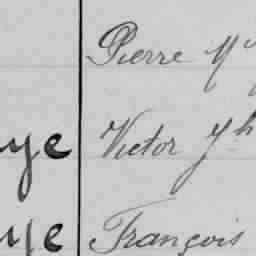 Pierre Mie
ye Victor Jh
ye François